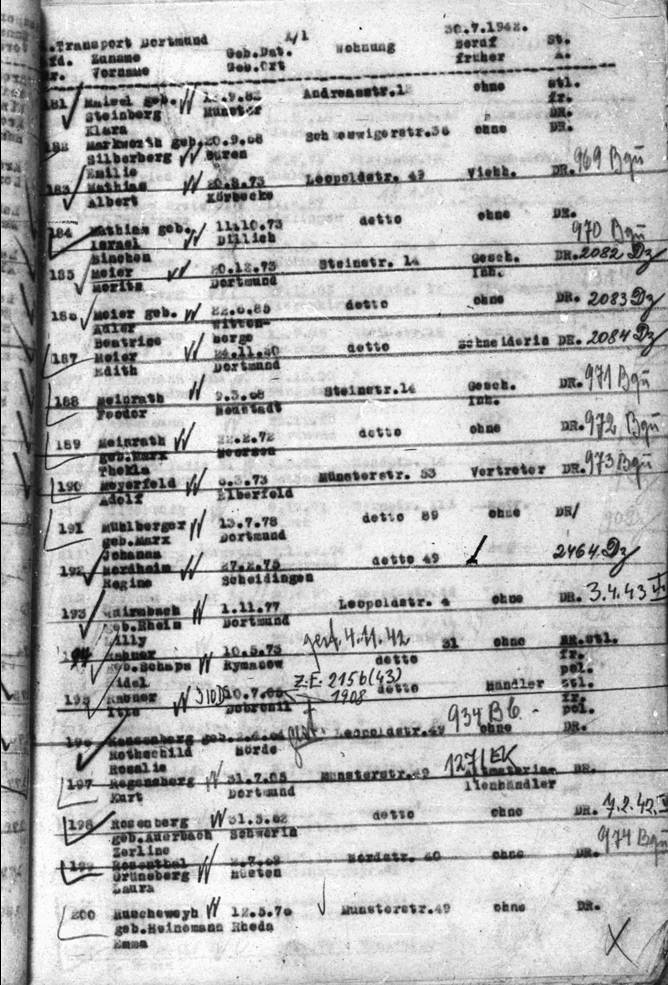 .Transport Dortmund 30.7.1942.
fd. Zuname Geb.Dat. Wohnung Beruf St.
r. Vorname Geb.Ort früher A.
181 Maisel geb. .9.82 Andreasstr.12 ohne stl.
Steinberg Münster fr.
Klara DR.
182 Markworth geb. 20.9.68 Schleswigerstr.36 ohne DR.
Silberberg Büren
Emilie 969 Bqu
183 Mathias 20.8.73 Leopoldstr. 49 Viehh. DR.
Albert Körbecke
184 Mathias geb. 11.10.73 detto ohne DR.
Israel Dillich 970 Bqu
Binchen
185 Meier 20.12.73 Steinstr. 14 Gesch. DR. 2082 Dz
Moritz Dortmund Inh.
186 Meier geb. 22.6.85 detto ohne DR. 2083 Dz
Adler Witten-
Beatrice berge
187 Meier 24.11.20 detto Schneiderin DR. 2084 Dz
Edith Dortmund
188 Meinrath 9.3.68 Steinstr.14 Gesch. DR. 971 Bqu
Feodor Neustadt Inh.
189 Meinrath 22.2.72 detto ohne DR. 972 Bqu
geb.Marx
Thekla
190 Meyerfeld 6.3.73 Münsterstr. 53 Vertreter DR. 973 Bqu
Adolf Elberfeld
191 Mühlberger 13.7.78 detto 89 ohne DR/
geb.Marx Dortmund
Johanna
192 Nordheim 27.2.75 detto 49 2464 Dz
Regine Scheidingen
193 1.11.77 Leopoldstr. 4 ohne DR. 3.4.43
geb.Rhein Dortmund
Lilly
194 Rabner 10.5.73 gest. 4.11.42 detto 31 ohne stl.
geb.Schaps Rymanow fr.
Eidel Z.E. 2156(43) pol.
195 Rabner 10.7.68 1908 detto Händler stl.
Itte Dobromil fr.
pol.
196 geb. Leopoldstr.49 934 Bb. ohne DR.
Rothschild Hörde
Rosalie
197 Regensberg 31.7.05 Münsterstr.49 1271 EK DR.
Kurt Dortmund lienhändler
198 Rosenberg 31.3.62 detto ohne DR. 7.2.42
geb.Auerbach Schwerin
Zerline 974 Bqu
199 Rosenthal Nordstr. 40 ohne DR.
Grüneberg Hüsten
Laura
200 Ruscheweyh 12.5.76 Münsterstr.49 ohne DR.
geb.Heinemann Rheda
Emma
X